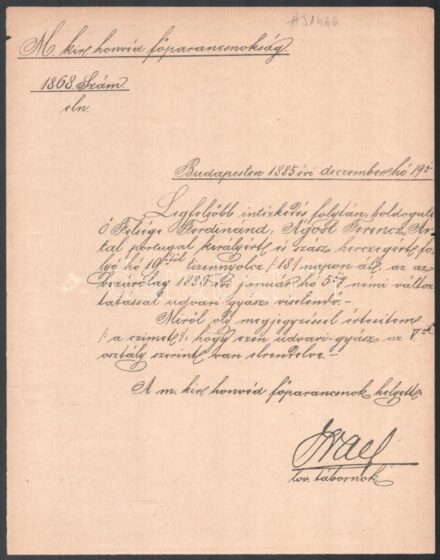 #J1466
M. kir. honvéd főparancsnokság.
1868. Szám.
eln.
Budapesten 1885 évi deczember hó 19én
Legfelsőbb intézkedés folytán, boldogult
Ő Felsége Ferdinánd, Ágost Ferencz, An-
tal portugal királyért és szász herczegért, fo-
lyó hó 19től tizennyolcz /:18:/ napon át, az az
bezárólag 1886. évi január hó 5éig nemi változ
tatással udvari gyász viselendő.-
Miről oly megjegyzéssel értesítem
/:a czimet:/, hogy ezen udvari gyász az Vik
osztály szerint van elrendelve.-
A m. kir. honvéd főparancsnok helyett:
lov. tábornok.